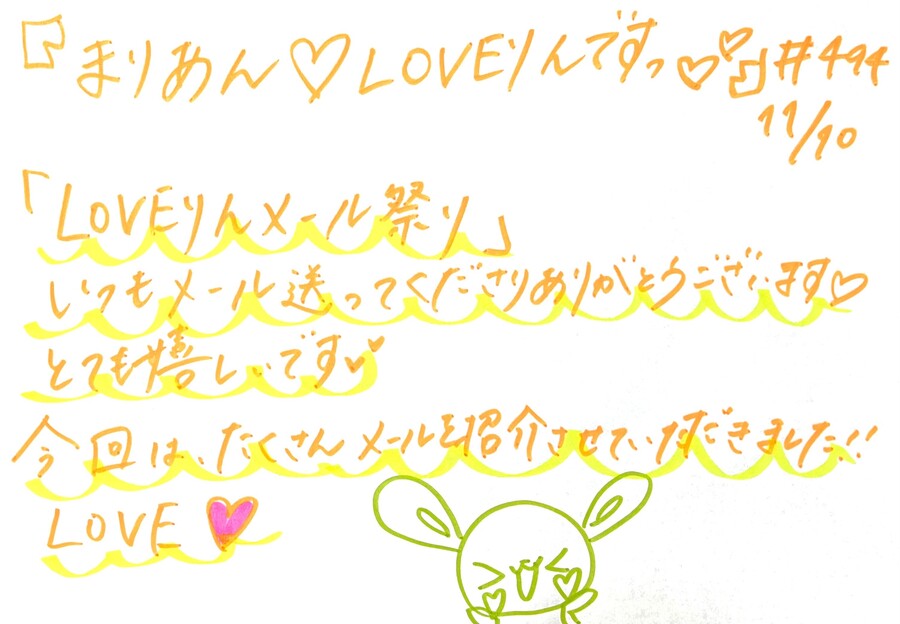 『まりあん♡LOVEりんですっ♡♡』#494
11/10
「LOVEりんメール祭り」
いつもメール送ってくださりありがとうございます♡
とても嬉しいです♡♡
今回は、たくさんメールを紹介させていただきました!!
LOVE♥